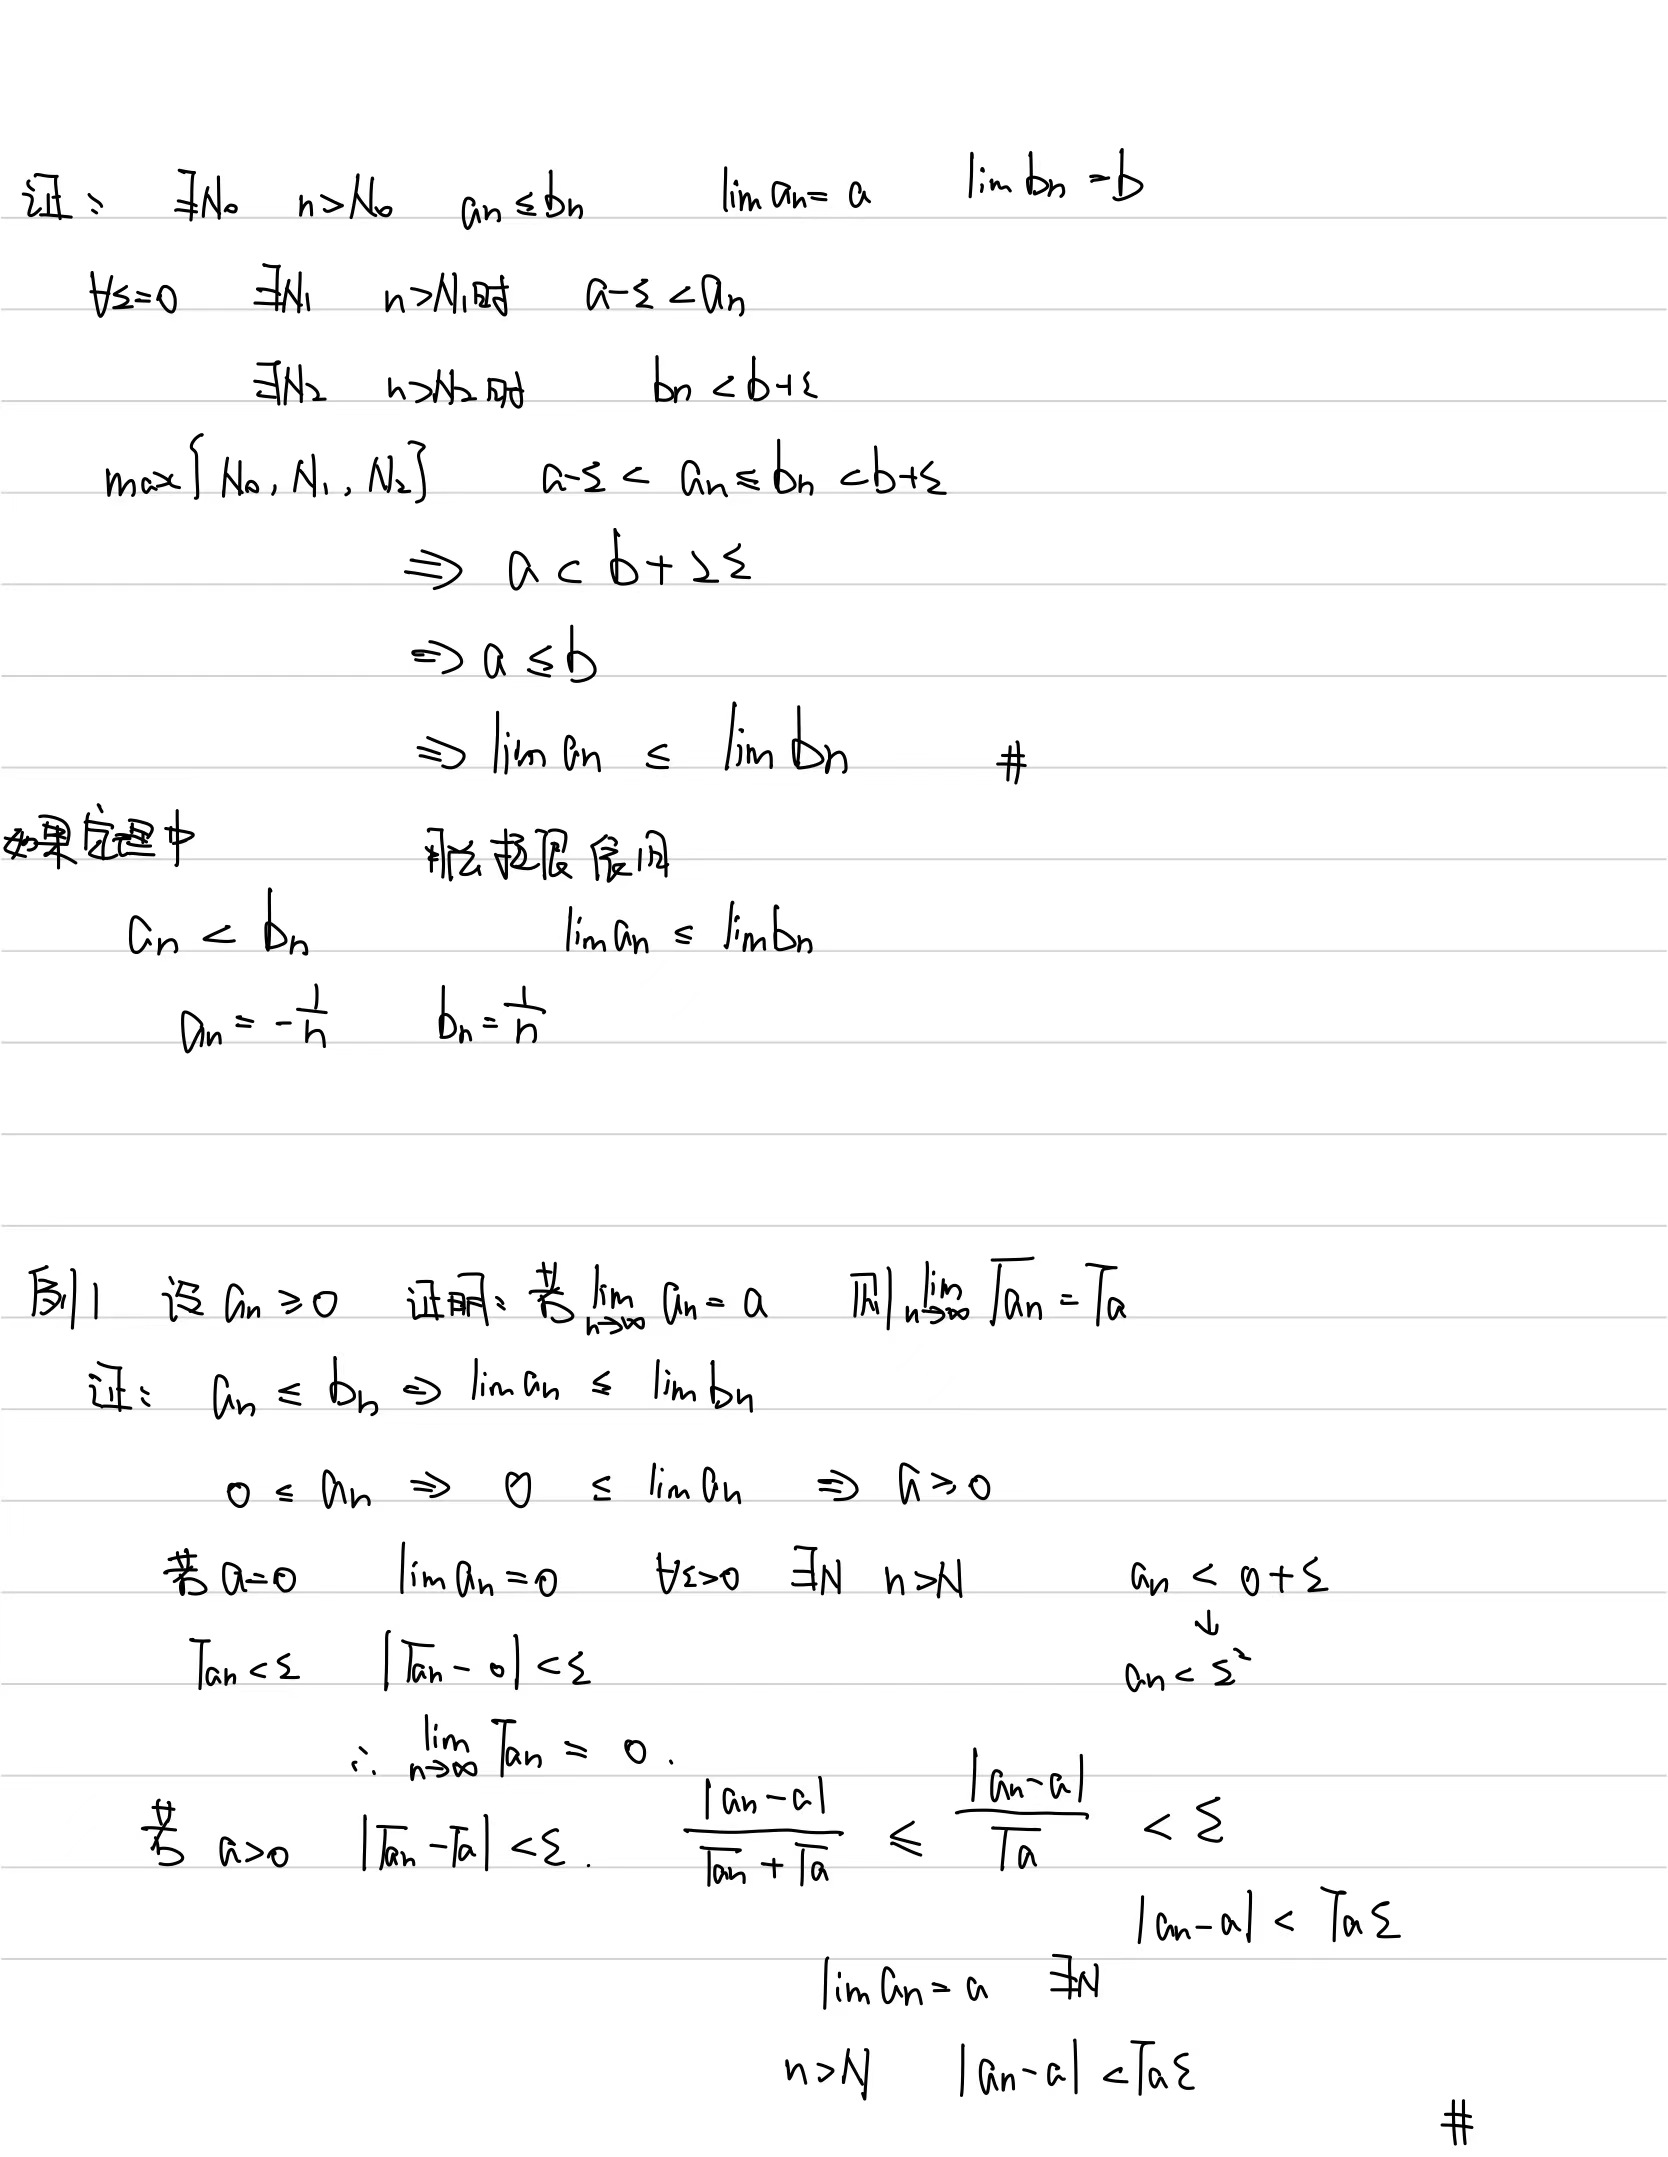 证： ∃N₀ n>N₀ aₙ≤bₙ lim aₙ= a lim bₙ =b
∀ε=0 ∃N₁ n>N₁时 a-ε<aₙ
∃N₂ n>N₂时 bₙ<b+ε
max{N₀, N₁, N₂} a-ε< aₙ≤bₙ <b+ε
⇒ a < b+2ε
⇒ a ≤ b
⇒ lim aₙ ≤ lim bₙ #
如果定理中 那么极限
aₙ < bₙ lim aₙ ≤ lim bₙ
aₙ = -1/n bₙ = 1/n
例1 设 aₙ≥0 证明：若 lim n→∞ aₙ= a 则 lim n→∞ √aₙ = √a
证： aₙ ≤ bₙ ⇒ lim aₙ ≤ lim bₙ
0 ≤ aₙ ⇒ 0 ≤ lim aₙ ⇒ a≥0
若 a=0 lim aₙ=0 ∀ε>0 ∃N n>N aₙ < 0+ε
↓
√aₙ<ε |√aₙ - 0|<ε aₙ< ε²
∴ lim n→∞ √aₙ = 0.
若 a>0 |√aₙ-√a|<ε. |aₙ-a|/(√aₙ+√a) ≤ |aₙ-a|/√a < ε
|aₙ-a| < √a ε
lim aₙ= a ∃N
n>N |aₙ-a| <√a ε
#